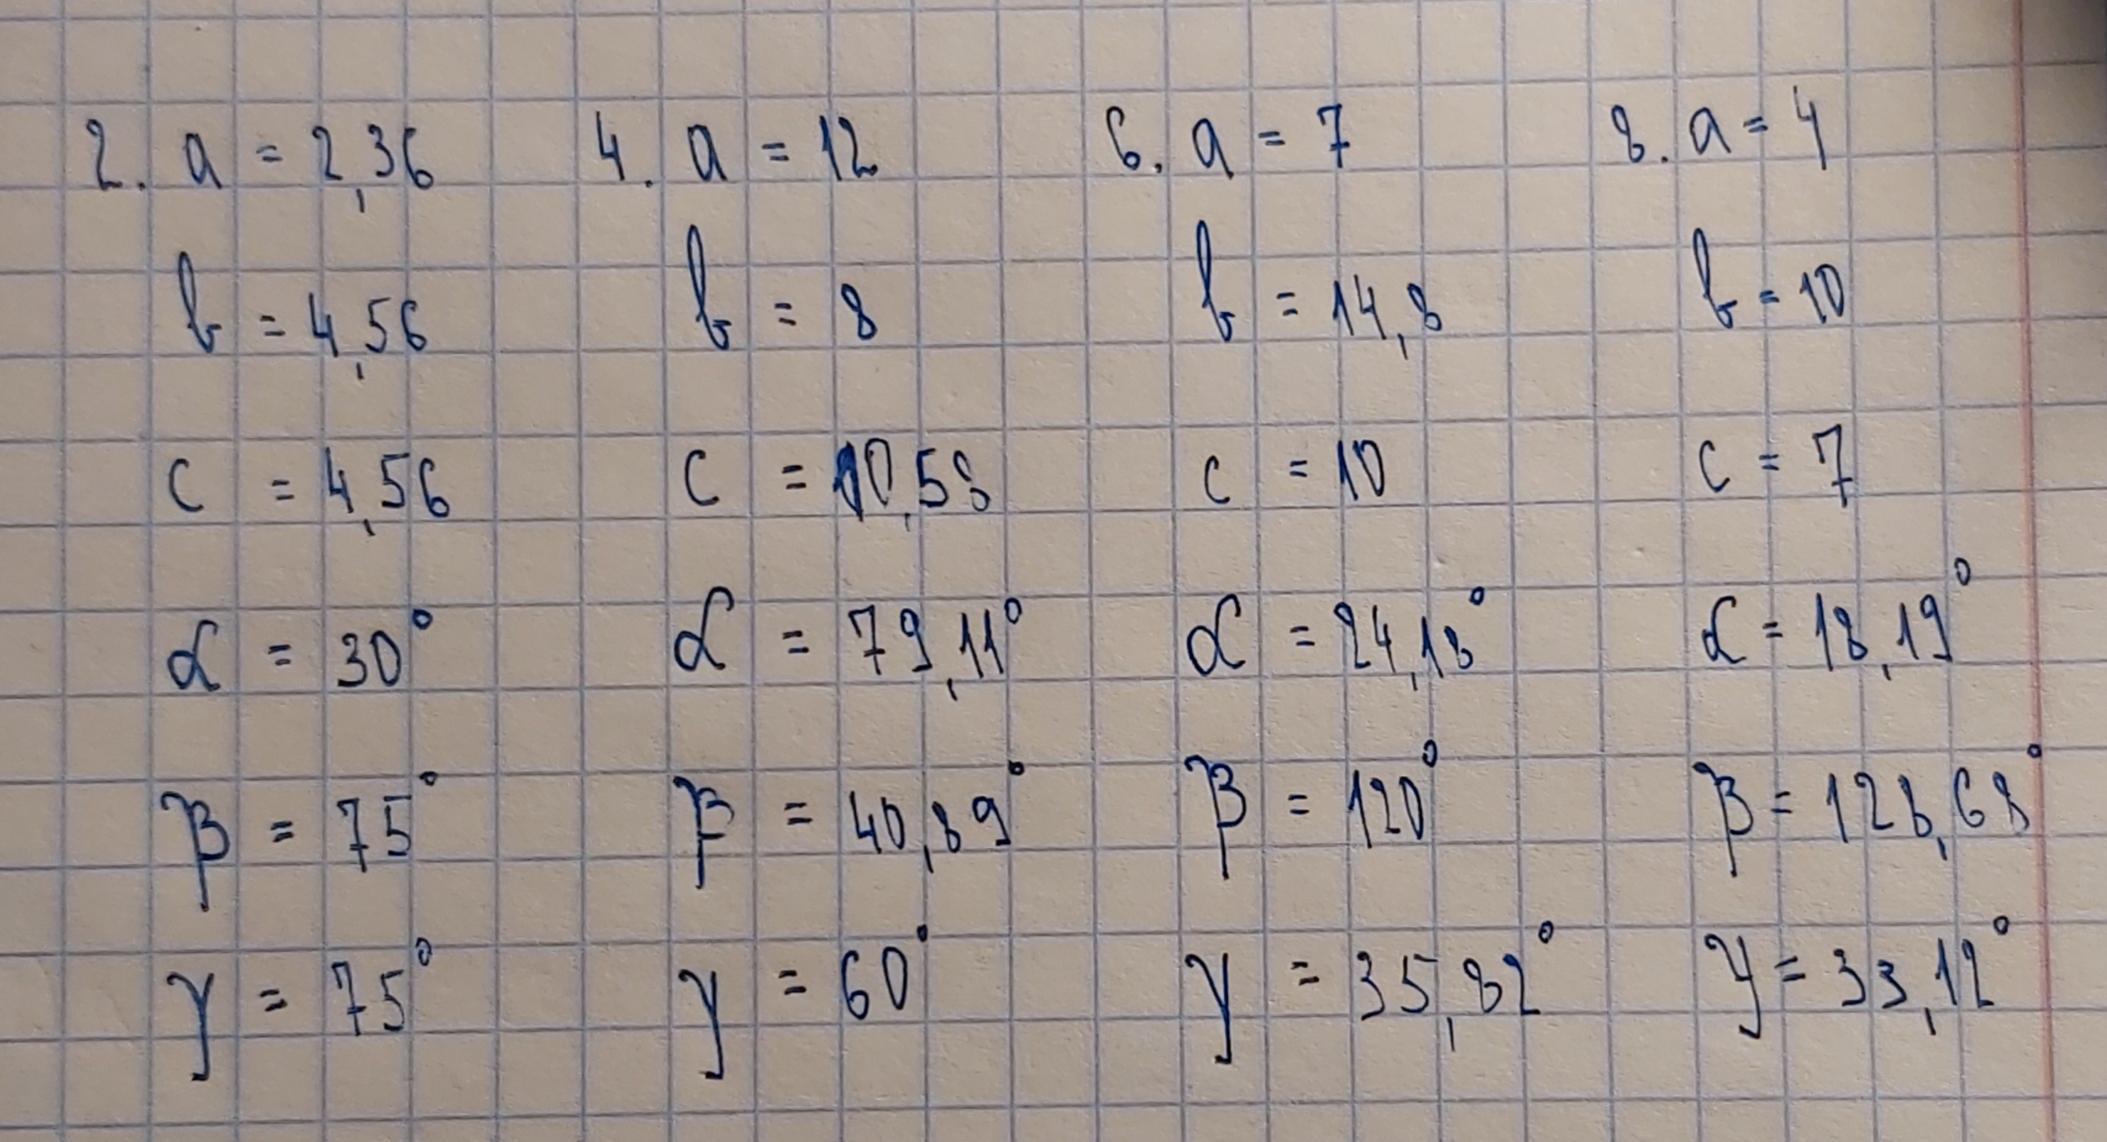 2. a = 2,36
b = 4,56
c = 4,56
α = 30°
β = 75°
γ = 75°
4. a = 12
b = 8
c = 10,58
α = 79,11°
β = 40,89°
γ = 60°
6. a = 7
b = 14,8
c = 10
α = 24,18°
β = 120°
γ = 35,82°
8. a = 4
b = 10
c = 7
α = 18,19°
β = 128,68°
γ = 33,12°